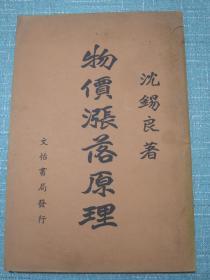 沈錫良著
物價漲落原理
文怡書局發行